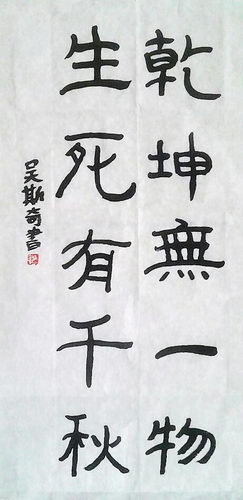 乾坤無一物
生死有千秋
吴斯奇書